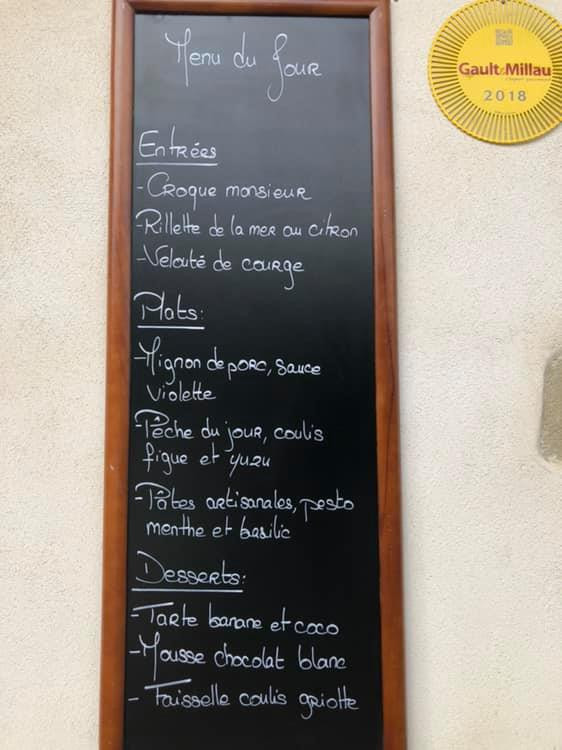 Menu du Jour
Entrées
- Croque monsieur
- Rillette de la mer au citron
- Velouté de courge
Plats:
- Mignon de porc, sauce
violette
- Pêche du jour, coulis
figue et yuzu
- Pâtes artisanales, pesto
menthe et basilic
Desserts:
- Tarte banane et coco
- Mousse chocolat blanc
- Faisselle coulis griotte
Gault&Millau
2018